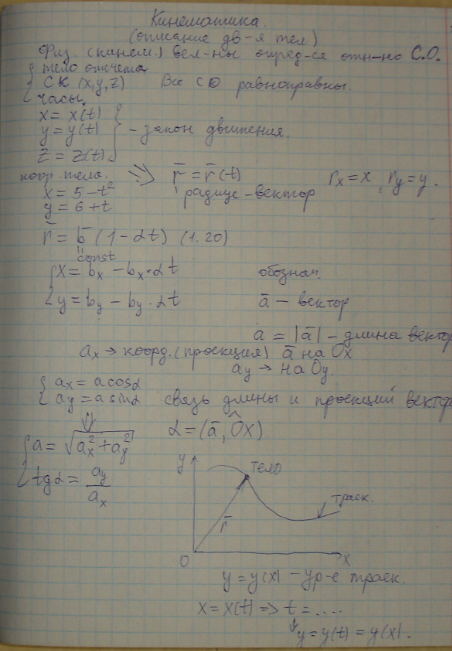 Кинематика.
(описание дв-я тел)
Физ. (кинем) вел-ны опред-ся отн-но С.О.
тело отсчета
СК (x,y,z) Все СО равноправны.
часы
x = x(t)
y = y(t) - закон движения.
z = z(t)
коор. тела. => r̄ = r̄(t) rx = x, ry = y.
x = 5 - t² радиус-вектор
y = 6 + t
r̄ = b̄ (1 - αt) (1.20)
const
x = bx - bx·αt обознач.
y = by - by·αt ā - вектор
a = |ā| - длина вектор
ax → коорд. (проекция) ā на Ox
ay → на Oy.
ax = a cosα
ay = a sinα связь длины и проекций вектор
a = √(ax² + ay²) α = (ā, Ox)
tgα = ay/ax
y тело
траек.
r̄
0 x
y = y(x) - ур-е траек.
x = x(t) => t = ....
y = y(t) = y(x).